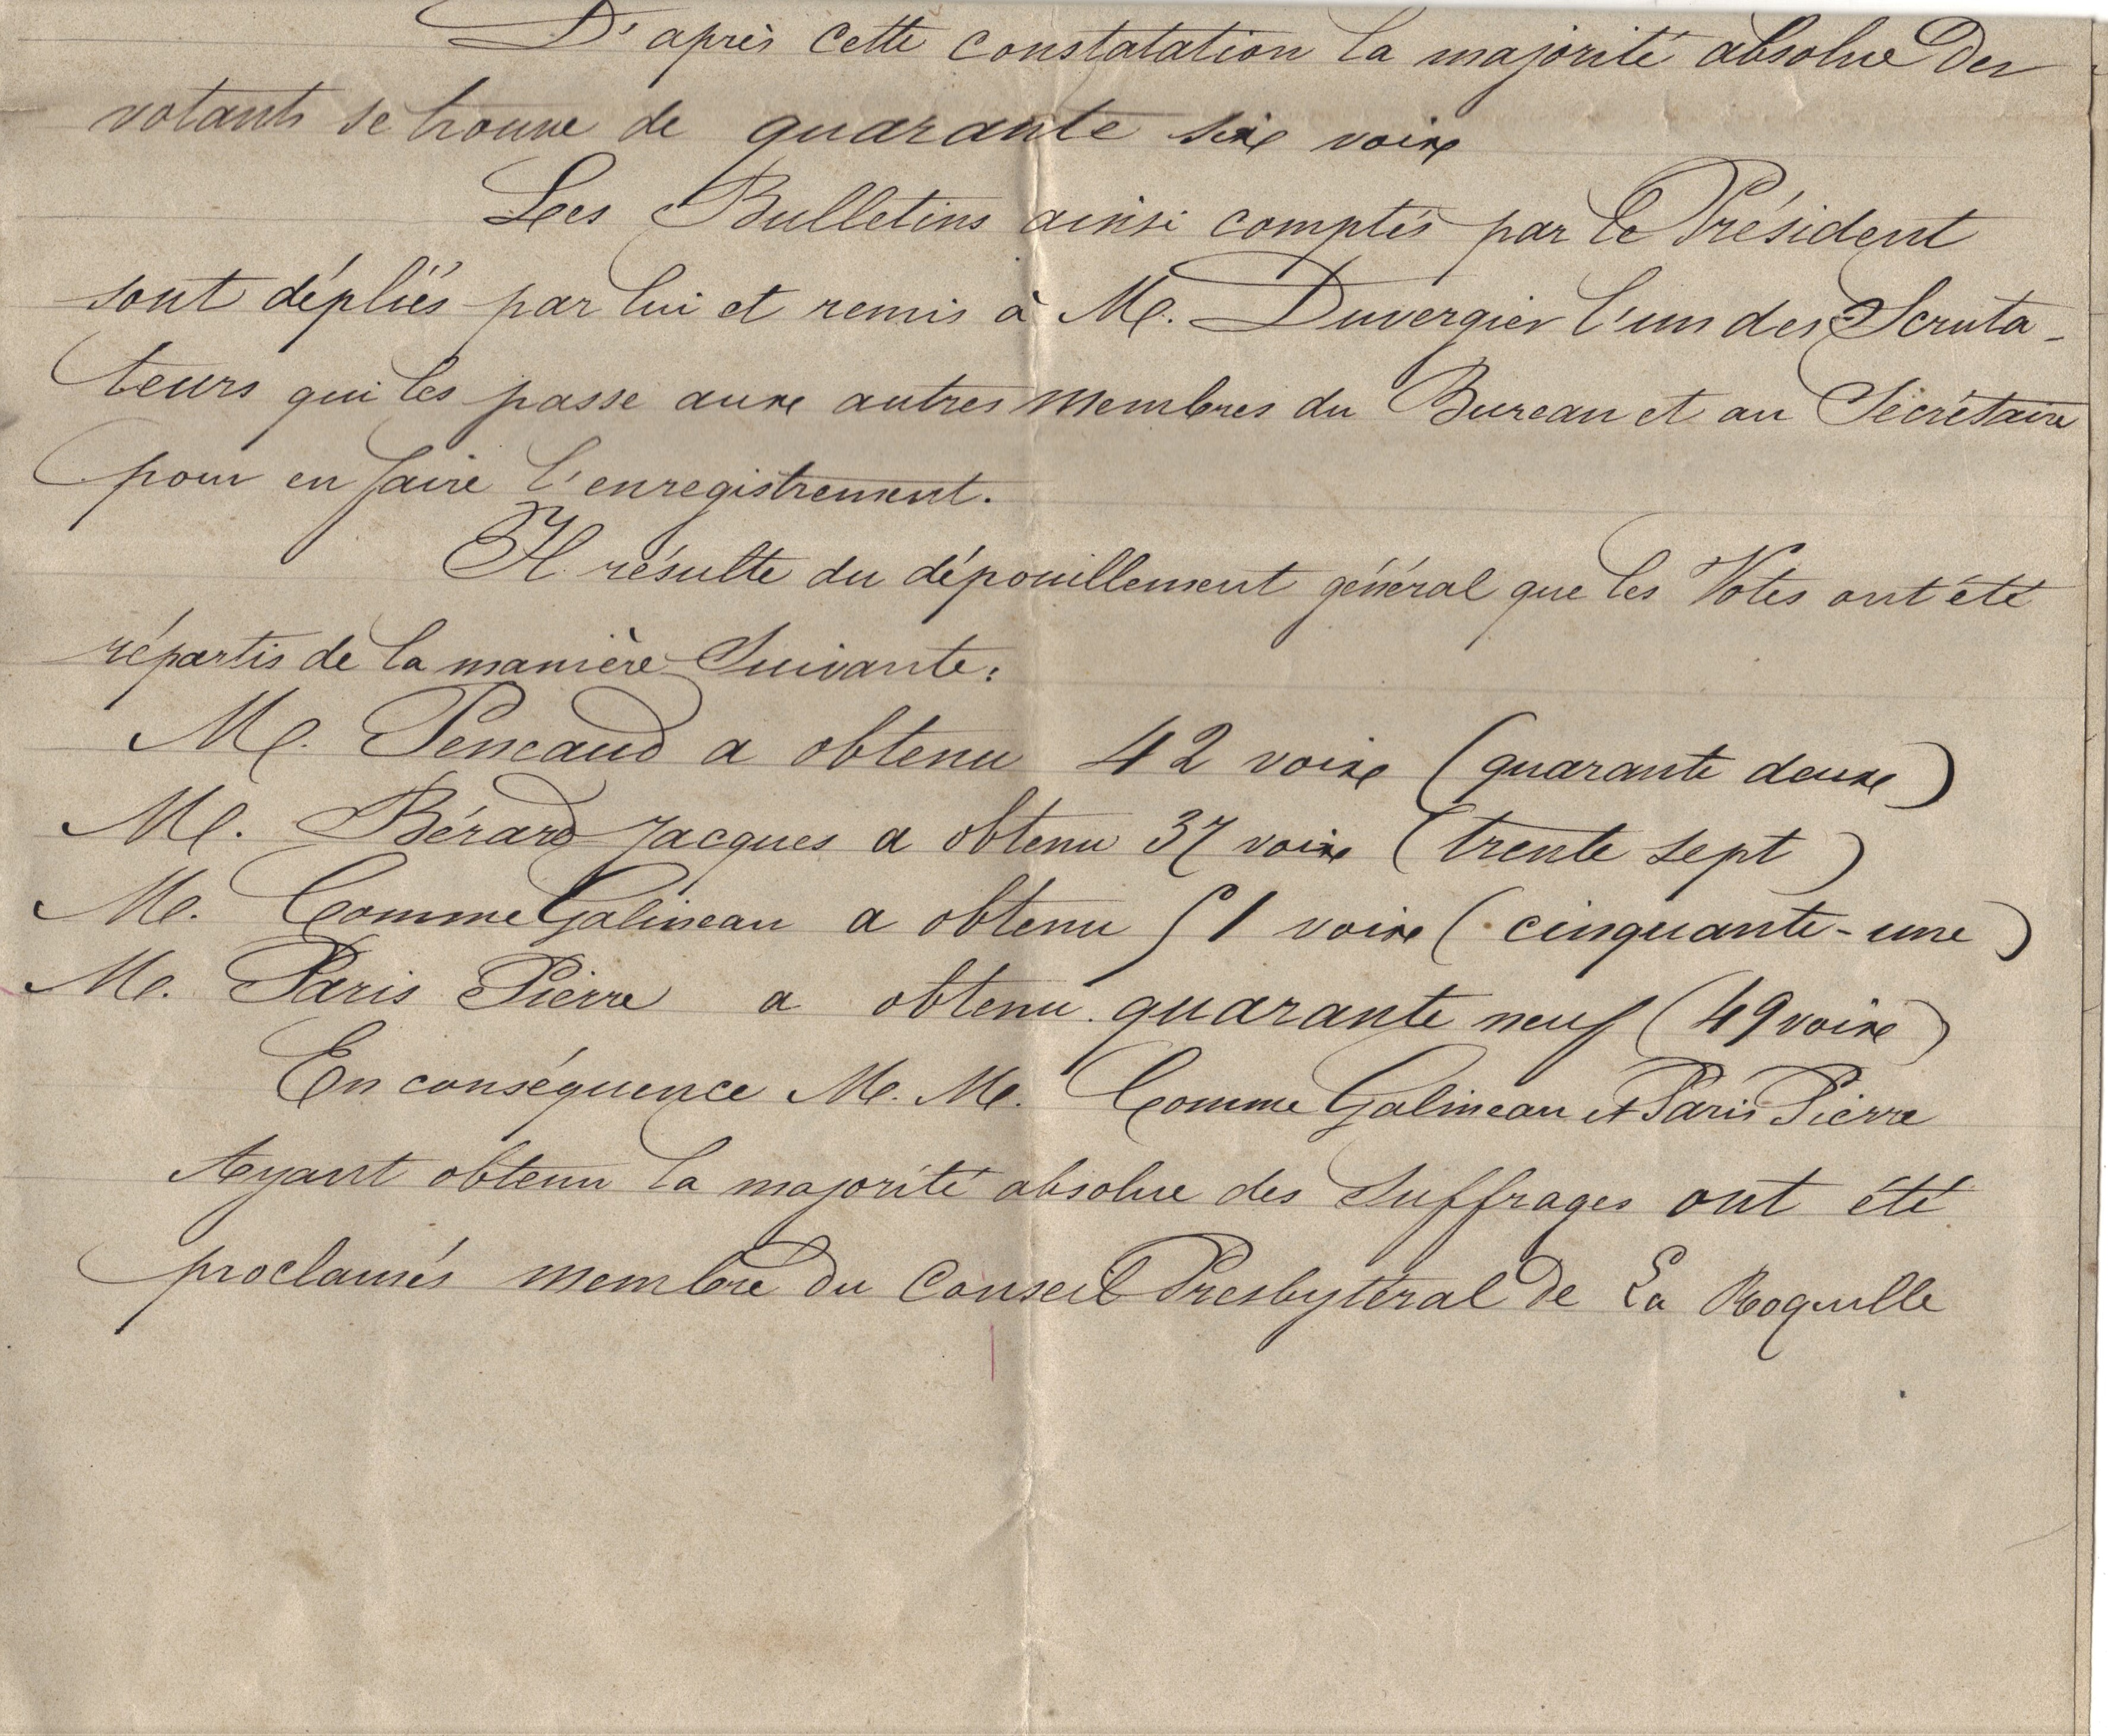 D'après cette constatation la majorité absolue des
votants se trouve de quarante six voix
Les Bulletins ainsi comptés par le Président
sont dépliés par lui et remis à M. Duvergier l'un des Scruta-
teurs qui les passe aux autres membres du Bureau et au Sécrétaire
pour en faire l'enregistrement.
Il résulte du dépouillement général que les Votes ont été
répartis de la manière Suivante:
M. Pencaud a obtenu 42 voix (quarante deux)
M. Bérard Jacques a obtenu 37 voix (trente sept)
M. Comme Galineau a obtenu 51 voix (cinquante-une)
M. Paris Pierre a obtenu quarante neuf (49 voix)
En conséquence M. M. Comme Galineau et Paris Pierre
Ayant obtenu la majorité absolue des Suffrages ont été
proclamés membre du Conseil Presbytéral de La Roquille